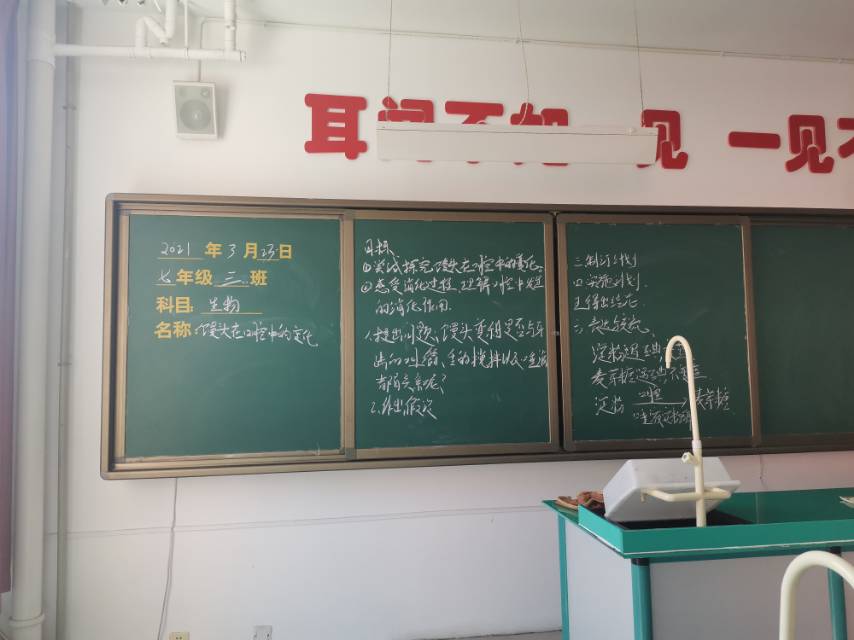 耳闻不如一见 一见不
2021 年 3 月 23 日
七年级 三 班
科目: 生物
名称: 馒头在口腔中的变化
目标
①尝试探究馒头在口腔中的变化。
②感受消化过程,理解口腔中发生
的消化作用.
1.提出问题、馒头变甜是否与牙
齿的咀嚼、舌的搅拌以及唾液
都有关系呢?
2.作出假设
三.制订计划
四.实施计划
五.得出结论
六.表达与交流
淀粉遇碘变蓝
麦芽糖遇碘不变蓝
淀粉 口腔 麦芽糖.
唾液淀粉酶